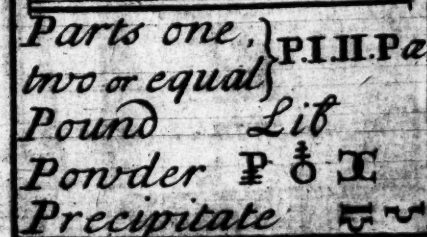 Parts one,
two or equal} P.I.II.Pæ
Pound Lib
Powder
Precipitate